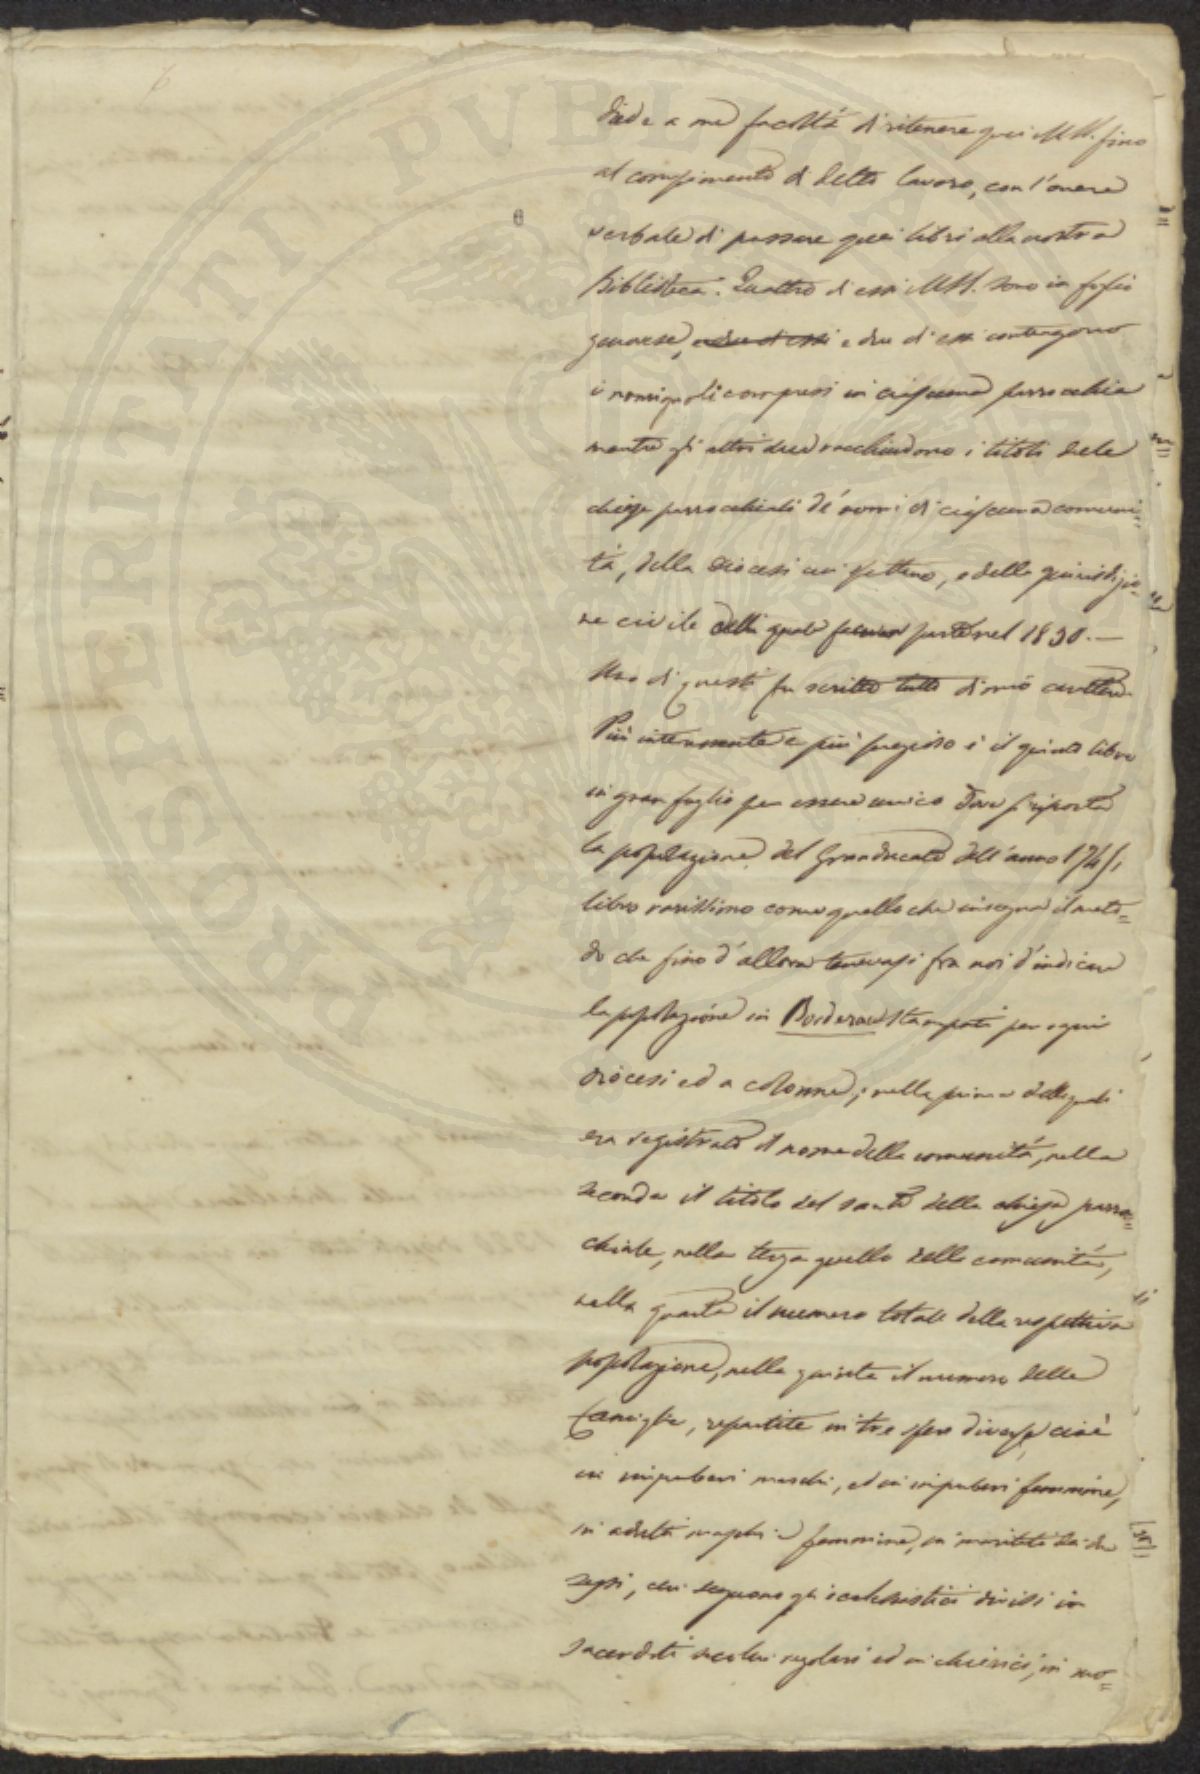 PROSPERITATI PUBLICAE
diede a me facoltà di ritenere quei MSS. fino
al compimento di detto lavoro, con l'onere
verbale di passare quei libri alla nostra
Biblioteca. Quattro di essi MSS. sono in foglio
e due di essi contengono
i compresi in ciascuna parrocchia
mentre gli altri due racchiudono i titoli dele
chiese parrocchiali de' nomi di ciascuna comuni=
tà, della diocesi cui spettano, e della giurisdizio=
ne civile delle quali parte nel 1830. —
Uno di questi fu scritto tutto di mio carattere
Più interessante e più pregioso è il quinto libro
in gran foglio per essere unico dove si riporta
la popolazione del Granducato dell'anno
libro rarissimo come quello che insegna il meto=
do che fino d'allora tenevasi fra noi d'indicare
la popolazione in stampati per ogni
diocesi ed a colonne; nella prima delle quali
era registrato il nome della comunità, nella
seconda il titolo del santo della chiesa parro=
chiale, nella terza quello della comunità,
nella quarta il numero totale della respettiva
popolazione, nella quinta il numero delle
famiglie, repartite in tre diverse, cioè
in impuberi maschi, ed in impuberi femmine,
in adulti maschi e femmine, in maritati dei due
sessi, cui seguono gli ecclesiastici divisi in
sacerdoti secolari regolari ed in chierici, in mo=